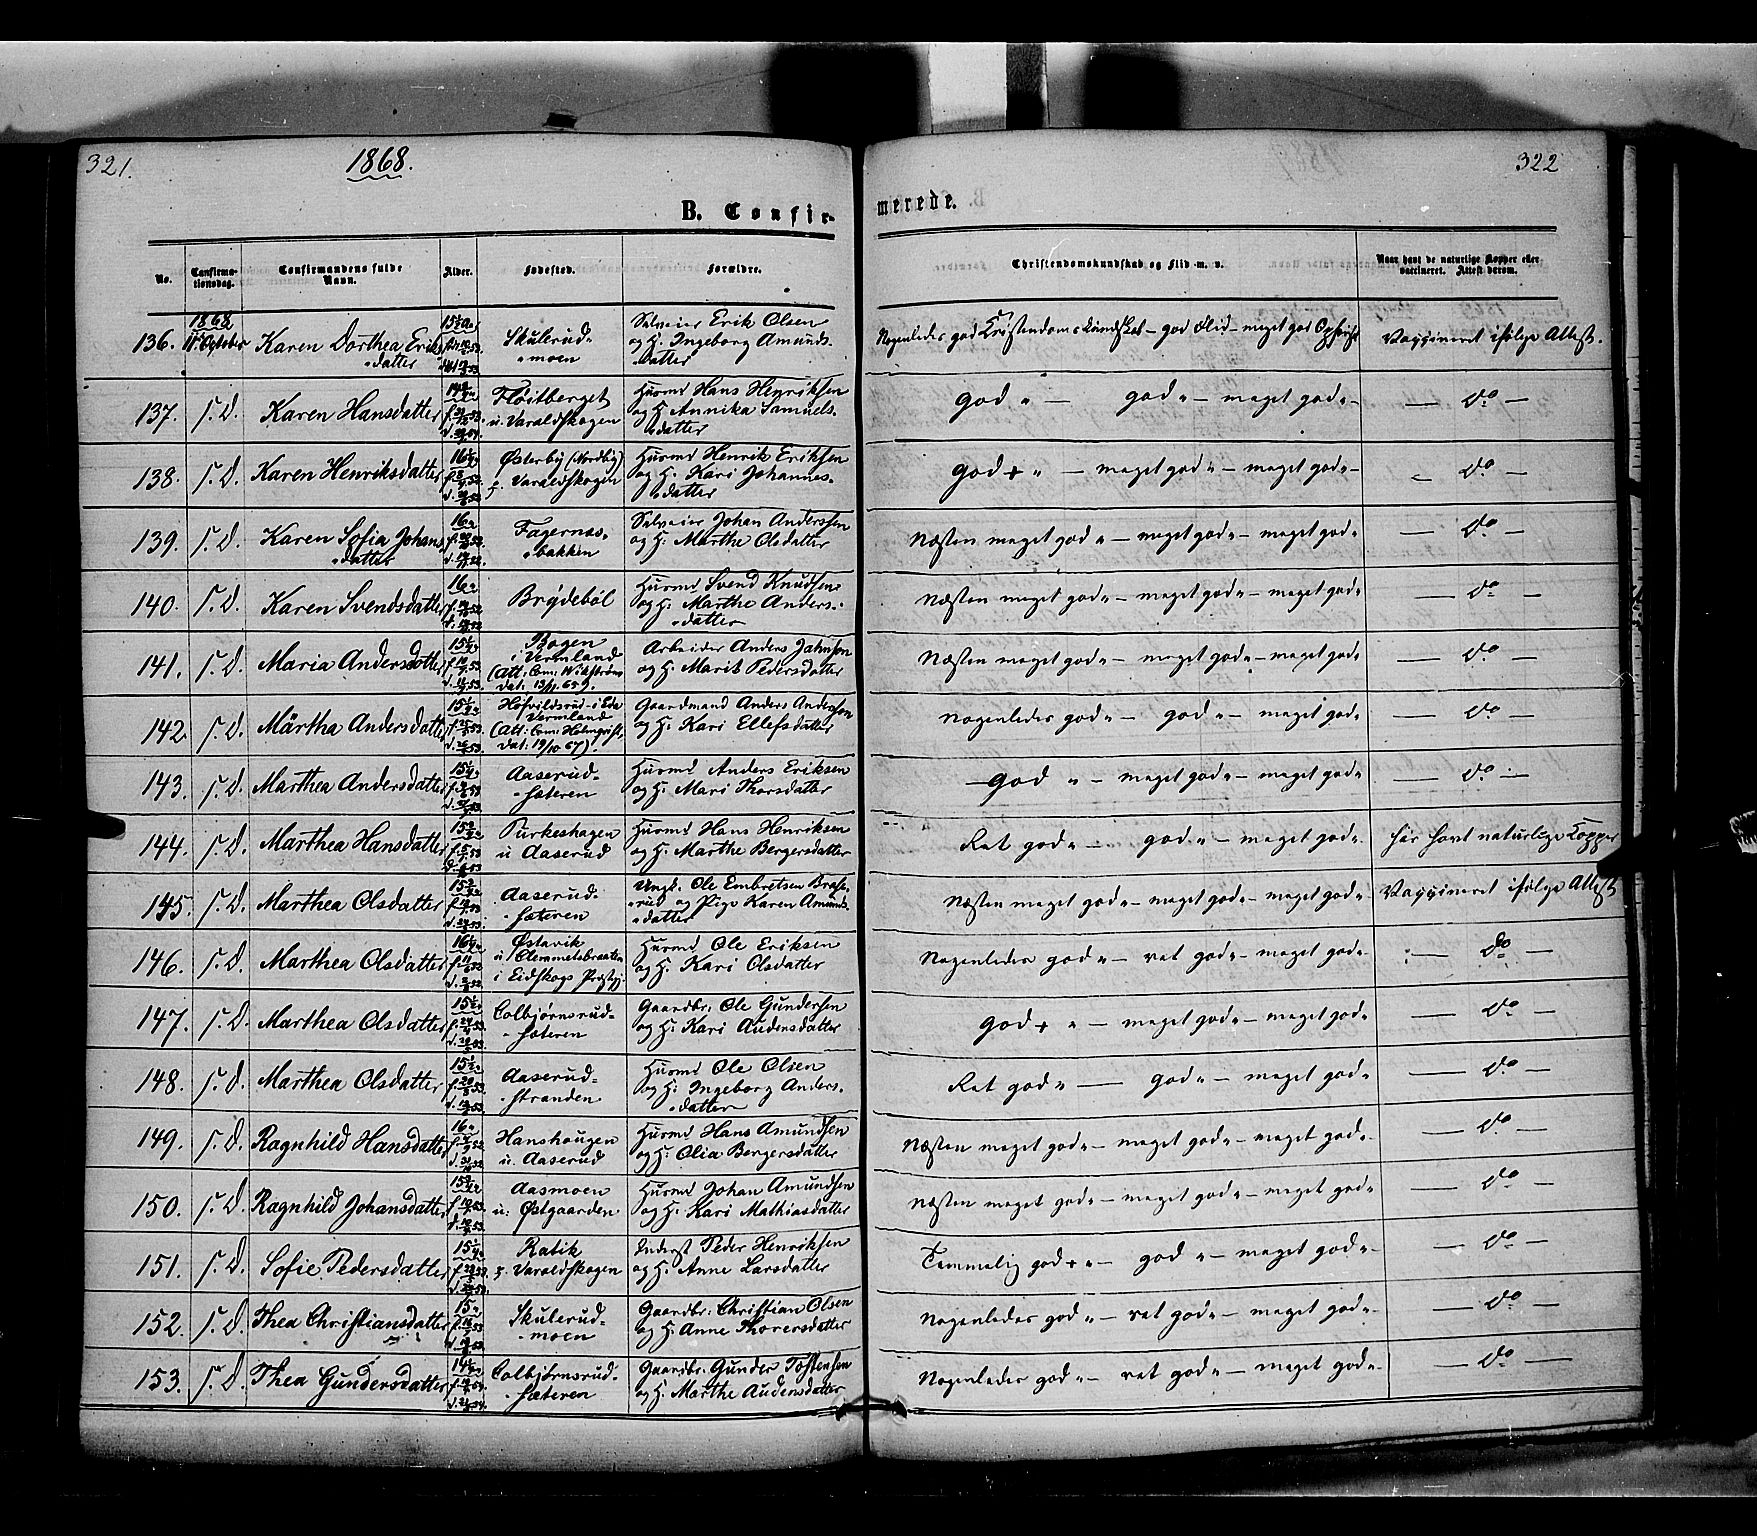 321.
1868.
322
B. Confir-
merede.
No.
Confirma-
tionsdag.
Confirmandens fulde
Navn.
Alder.
Fødested.
Forældre.
Christendomskundskab og Flid m. v.
Naar havt de naturlige Kopper eller
vaccineret. Attest derom.
136. 1868 11te October Karen Dorthea Eriks
datter
Skulerud-
moen
Selveier Erik Olsen
og H. Ingeborg Amunds-
datter
Nogenledes god Kristendomskundskab – god Flid – meget god Opførsel
Vaccineret ifølge Attest.
137. s. D. Karen Hansdatter
Fløitberget
u. Varaldskogen
Husmd Hans Henriksen
og H. Annika Samuels-
datter
god " – god " – meget god " –
— do —
138. s. D. Karen Henriksdatter
Østerby (Nordby)
Varaldskogen
Husmd Henrik Eriksen
og H. Kari Johannes-
datter
god + " – meget god " – meget god " –
— do —
139. s. D. Karen Sofia Johans-
datter
16
Fagernæs-
bakken
Selveier Johan Anderssen
og H. Marthe Olsdatter
Næsten meget god " – meget god " – meget god "
— do —
140. s. D. Karen Svendsdatter
16
Brødeböl
Husmd Svend Knudsen
og H. Marthe Anders-
datter
Næsten meget god " – meget god " – meget god "
— do —
141. s. D. Maria Andersdatter
Bogen
i Vermland
dat: 13/11 65).
Arbeider Anders Jahnsen
og H. Marit Pedersdatter
Næsten meget god " – meget god " – meget god "
— do —
142. s. D. Märtha Andersdatter
i Eda
Vermland
(Att: Com: Holmqvist,
dat: 19/10 67).
Gaardmand Anders Andersen
og H. Kari Ellefsdatter
Nogenledes god " – god " – meget god "
— do —
143. s. D. Marthea Andersdatter
Aaserud-
sæteren
Husmd Anders Eriksen
og H. Mari Thorsdatter
god " – meget god " – meget god "
— do —
144. s. D. Marthea Hansdatter
Purkeshagen
u Aaserud
Husmd Hans Henriksen
og H. Marthe Bergersdatter
Ret god " – god " – meget god "
har havt naturlige Kopper
145. s. D. Marthea Olsdatter
Aaserud-
sæteren
Ungk. Ole Embretsen Brase-
rud og Pige Karen Amunds-
datter
Næsten meget god " – meget god " – meget god "
Vaccineret ifølge Attest
146. s. D. Marthea Olsdatter
Østavik
u Clemmetsbraaten
i Eidskogs Præstegj.
Husmd Ole Eriksen
og H. Kari Olsdatter
Nogenledes god " – ret god " – meget god "
do —
147. s. D. Marthea Olsdatter
Colbjørnsrud-
sæteren
Gaardbr: Ole Gundersen
og H. Kari Audensdatter
god + " – meget god " – meget god "
— do —
148. s. D. Marthea Olsdatter
Aaserud-
stranden
Husmd Ole Olsen
og H. Ingeborg Anders-
datter
Ret god " — god " – meget god "
— do —
149. s. D. Ragnhild Hansdatter
16
Hanshaugen
u. Aaserud
Husmd Hans Amundsen
og H. Olia Bergersdatter
Næsten meget god " – meget god " – meget god "
— do —
150. s. D. Ragnhild Johansdatter
Aasmoen
u: Østgaarden
Husmd Johan Amundsen
og H. Kari Mathiasdatter
Næsten meget god " – meget god " – meget god "
— do —
151. s. D. Sofie Pedersdatter
Ratik
Varaldskogen
Inderst Peder Henriksen
og H. Anne Larsdatter
Temmelig god + " – god " – meget god "
— do —
152. s. D. Thea Christiansdatter
15
Skulerud-
moen
Gaardbr: Christian Olsen
og H. Anne Thoresdatter
Nogenledes god " – ret god " – meget god "
— do —
153. s. D. Thea Gundersdatter
Colbjørnsrud-
sæteren
Gaardbr. Gunder Tostensen
og H. Marthe Audensdatter
Nogenledes god " – ret god " – meget god "
— do —